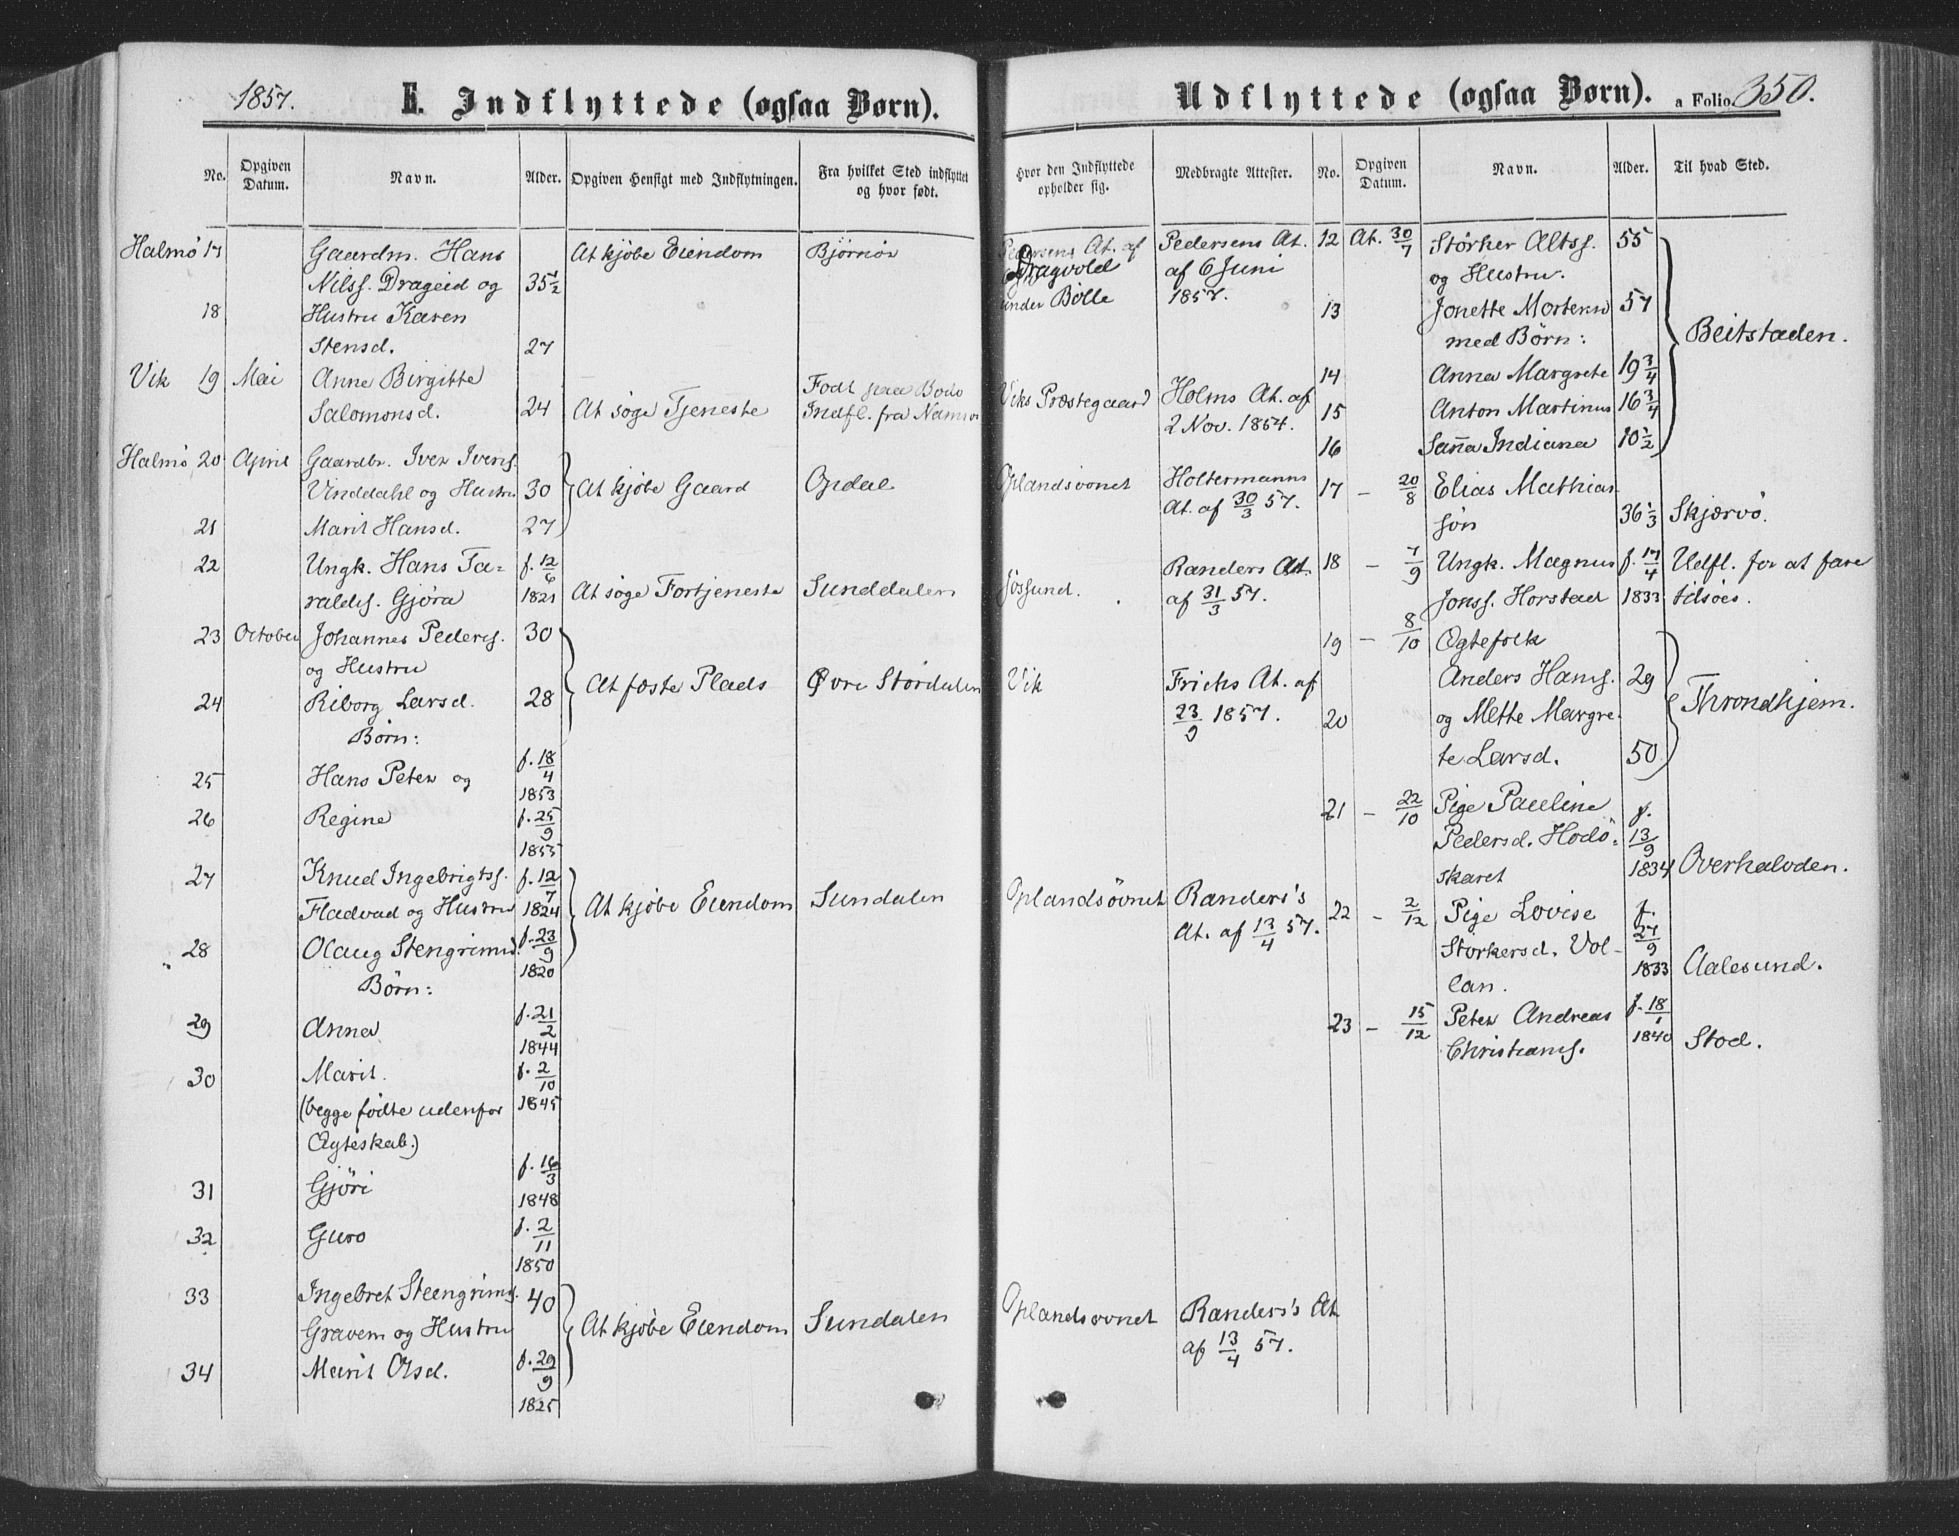 1857. E. Indflyttede (ogsaa Børn).
No. Opgiven Datum. Navn. Alder. Opgiven Hensigt med Indflytningen. Fra hvilket Sted indflyttet og hvor født.
Halmö 17 Gaardm. Hans At kjöbe Eiendom Bjørnör
Nilss. Drageid og 35 1/2
18 Hustru Karen
Stensd. 27
Vik 19 Mai Anne Birgitte Født paa Bodö
Salomonsd. 24 At söge Tjeneste Indfl. fra Namsos
Halmö 20 April Gaardbr. Iver Ivers.
Vinddahl og Hustru 30 At kjöbe Gaard Opdal
21 Marit Hansd. 27
22 Ungk. Hans Ta- f. 12/6
raldss. Gjöra 1821 At söge Fortjeneste Sunddalen
23 October Johannes Peders. 30
og Hustru At fæste Plads Øvre Stördalen
24 Riborg Larsd. 28
Börn:
25 Hans Peter og f. 18/4 1853
26 Regine f. 25/9 1855
27 Knud Ingebrigtss. f. 12/7
Fladvad og Hustru 1824 At kjöbe Eiendom Sundalen
28 Olaug Stengrimsd. f. 23/9 1820
Börn:
29 Anna f. 21/2 1844
30 Marit. f. 2/10
(begge födte udenfor 1845
Ægteskab.)
31 Gjöri f. 16/3 1848
32 Guro f. 2/11 1850
33 Ingebret Steengrims. 40
Gravem og Hustru At kjöbe Eiendom Sundalen
34 Marit Olsd. f. 29/9 1825
Udflyttede (ogsaa Børn). a Folio 350.
Hvor den Indflyttede opholder sig. Medbragte Attester. No. Opgiven Datum. Navn. Alder. Til hvad Sted.
Pedersens At. af Pedersens At. 12 At. 30/7 Störker Altss. 55
Dragvold af 6 Juni og Hustru.
under Bölle 1857. 13 Jonette Mortensd 57
med Børn: Beitstaden.
14 Anna Margrete 19 3/4
Viks Præstegaard Holms At. af 15 Anton Martinus 16 3/4
2 Nov. 1854. 16 Sanna Indiana 10 1/2
Oplandsvonet Holtermanns 17 – 20/8 Elias Mathias
At. af 30/3 57. sön 36 1/3 Skjærvö.
Randers At. 18 – 7/9 Ungk. Magnus f. 17/4 Udfl. for at fare
Jössund. af 31/3 57. Jonss. Horstad 1833 tilsöes.
19 – 8/10 Ægtefolk
Vik Frichs At. af Anders Hans. 29 Throndhjem.
23/9 1857. 20 og Mette Margre-
te Larsd. 50
21 – 22/10 Pige Pauline f.
Pedersd. Hodö- 13/9
skaret 1834 Overhalvden.
Oplandsövnet Randers's 22 – 2/12 Pige Lovise f.
At. af 13/4 57. Störkersd. Vol- 27/9
lan. 1833 Aalesund.
23 – 15/12 Peter Andreas f. 18/1
Christians. 1840 Stod.
Oplandsvonet Randers's At
af 13/4 57.